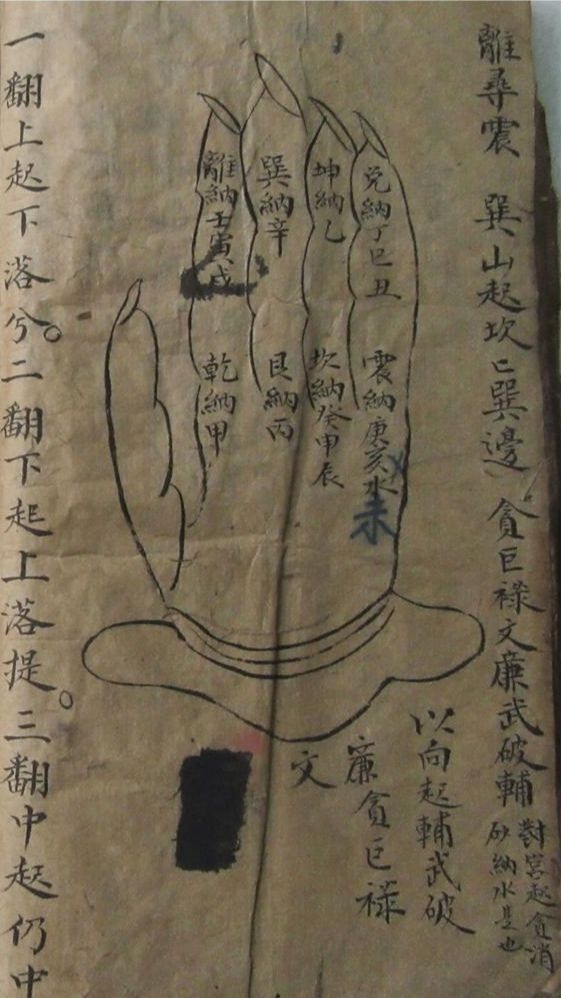 離尋震 巽山起坎亡巽邊 貪巨祿文廉武破輔
對宮起貪消
砂納水是也
以向起輔武破
廉貪巨祿
文
兌納丁巳丑
震納庚亥水
未
坤納乙
坎納癸申辰
巽納辛
艮納丙
離納壬寅戌
乾納甲
一翻上起下落兮。二翻下起上落提。三翻中起仍中